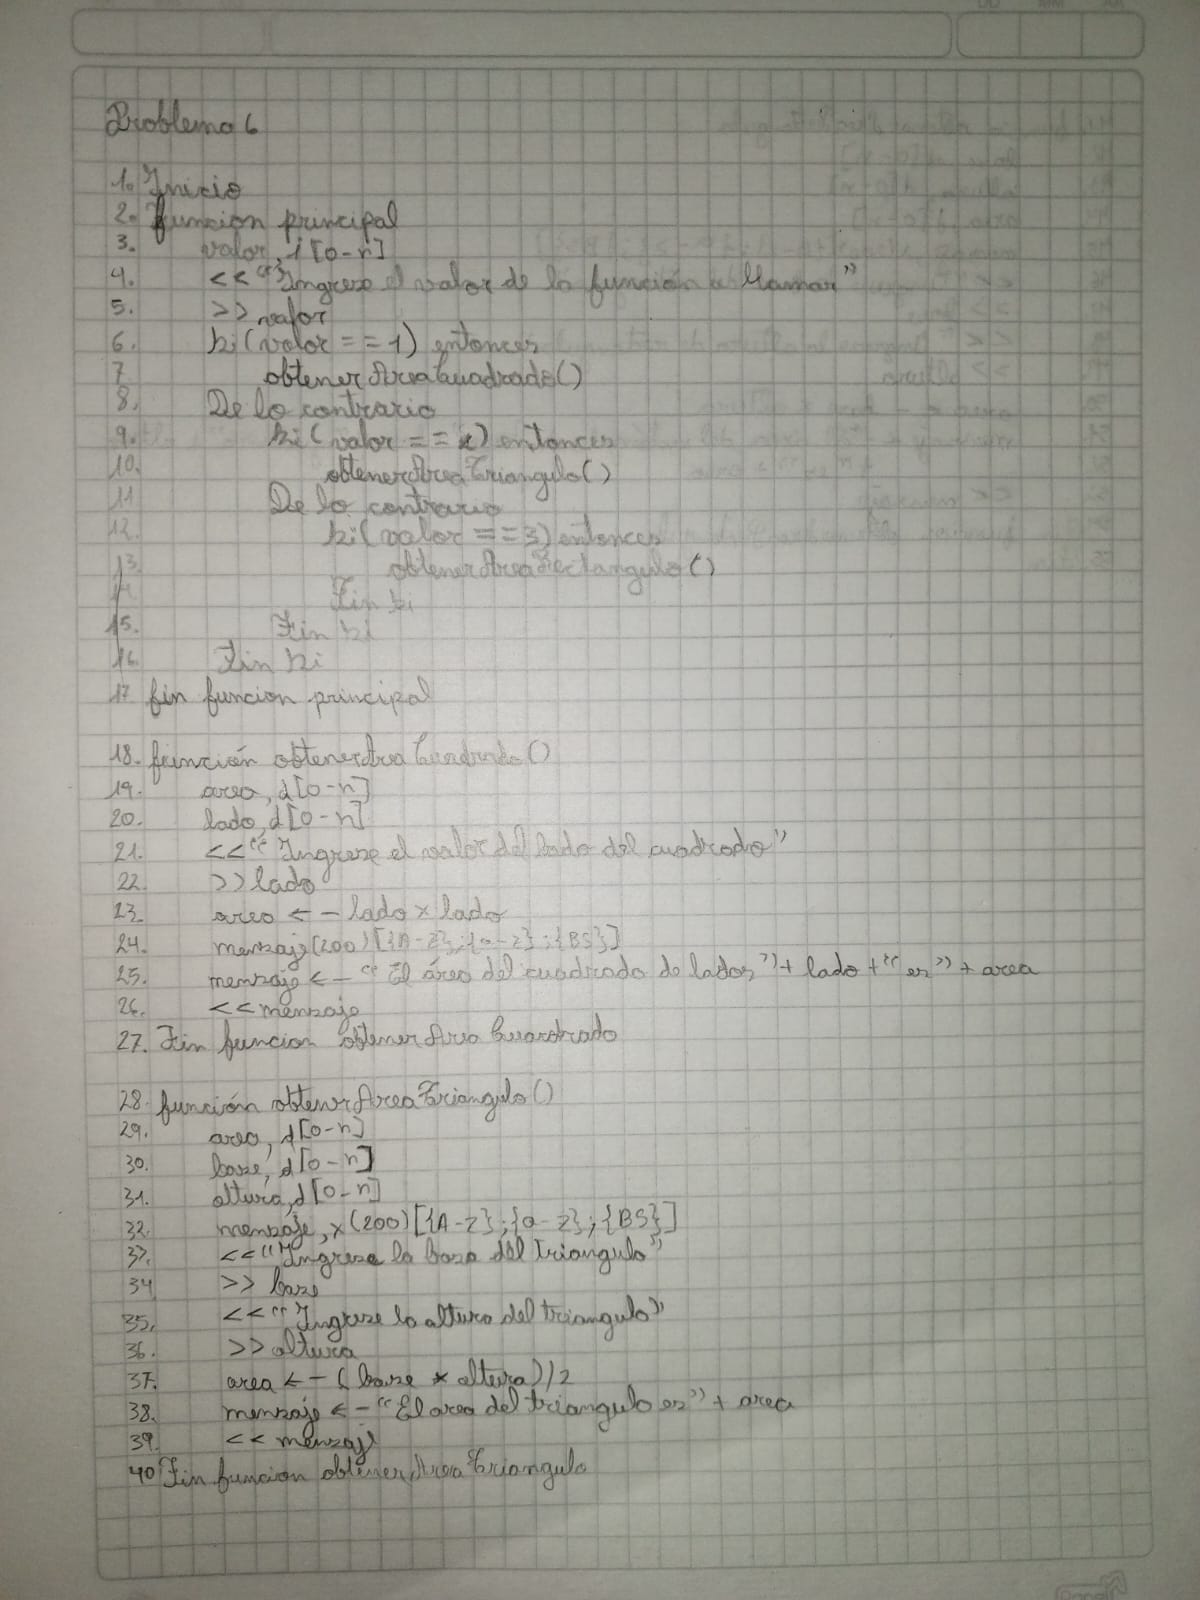 Problema 6
1. Inicio
2. funcion principal
3. valor, i [0-n]
4. << "Ingrese el valor de la función a llamar"
5. >> valor
6. Si (valor == 1) entonces
7 obtenerAreaCuadrado()
8. De lo contrario
9. Si (valor == 2) entonces
10. obtenerAreaTriangulo()
11 De lo contrario
12. Si (valor == 3) entonces
13. obtenerAreaRectangulo()
14. Fin Si
15. Fin Si
16. Fin Si
17 fin funcion principal
18. función obtenerAreaCuadrado()
19. area, d[0-n]
20. lado, d[0-n]
21. << "Ingrese el valor del lado del cuadrado"
22. >> lado
23. area <- lado x lado
24. mensaje(200) [{A-Z};{a-z};{BS}]
25. mensaje <- "El área del cuadrado de lados" + lado + "es" + area
26. << mensaje
27. Fin funcion obtenerAreaCuardrado
28. función obtenerAreaTriangulo()
29. area, d[0-n]
30. base, d[0-n]
31. altura, d[0-n]
32. mensaje, x(200) [{A-Z};{a-z};{BS}]
33. << "Ingrese la base del triangulo"
34 >> base
35. << "Ingrese la altura del triangulo"
36. >> altura
37. area <- (base * altura)/2
38. mensaje <- "El area del triangulo es" + area
39. << mensaje
40 Fin funcion obtenerAreaTriangulo